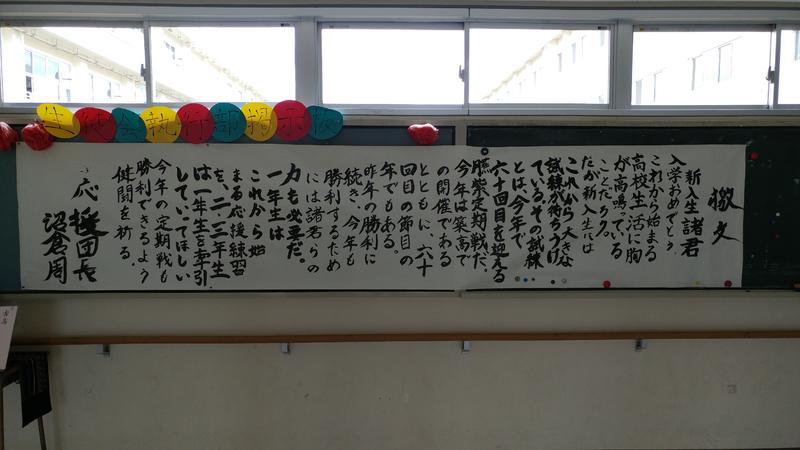 生徒会執行部掲示板
檄文
新入生諸君
入学おめでとう
これから始まる
高校生活に胸
が高鳴っている
ことだろう。
だが新入生には
これから大きな
試練が待ちうけ
ている。その試練
とは、今年で
六十回目を迎える
定期戦だ。
今年は築高で
の開催である
とともに、六十
回目の節目の
年でもある。
昨年の勝利に
続き、今年も
勝利するため
には諸君らの
力も必要だ。
一年生は
これから始
まる応援練習
を、二、三年生
は一年生を牽引
していってほしい
今年の定期戦も
勝利できるよう
健闘を祈る。
応援団長
沼倉周